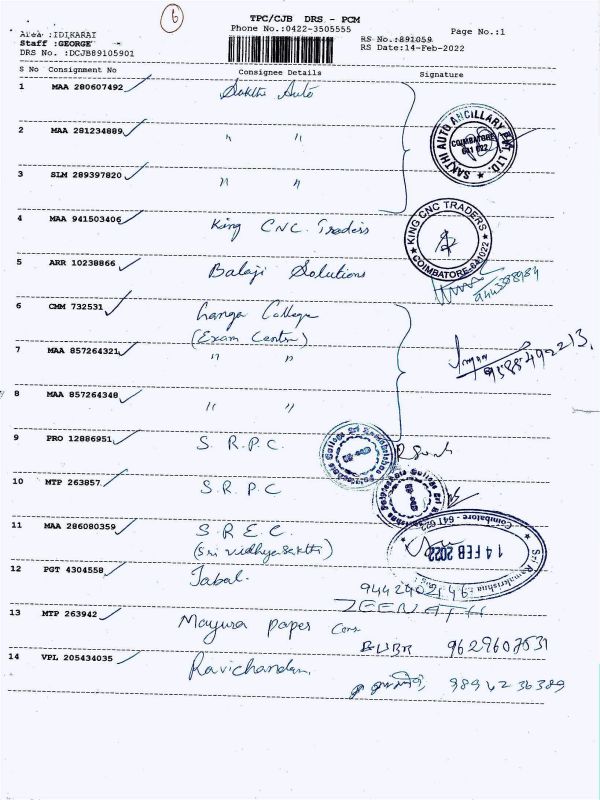 6
TPC/CJB DRS - PCM
Phone No.:0422-3505555
Page No.:1
Area :IDIKARAI
Staff :GEORGE
DRS No. :DCJB89105901
RS No.:891059
RS Date:14-Feb-2022
S No Consignment No Consignee Details Signature
1 MAA 280607492 Sakthi Auto
2 MAA 281234889 " "
SAKTHI AUTO ANCILLARY PVT LTD.
COIMBATORE
641 022
3 SLM 289397820 " "
4 MAA 941503406 King CNC Traders
KING CNC TRADERS
COIMBATORE-641022
5 ARR 10238866 Balaji Solutions
6 CMM 732531 Ganga College
(Exam Centre)
7 MAA 857264321 " "
9588490213
8 MAA 857264348 " "
9 PRO 12886951 S.R.P.C.
10 MTP 263857 S.R.P.C
11 MAA 286080359 S.R.E.C.
(Sri Vidhya Sakthi)
Sri Ramakrishna
14 FEB 2022
Coimbatore - 641 022
12 PGT 4304558 Jabal.
9442402146
ZEENATH
13 MTP 263942 Mayura paper Cons
9629607531
14 VPL 205434035 Ravichandan
9894236389